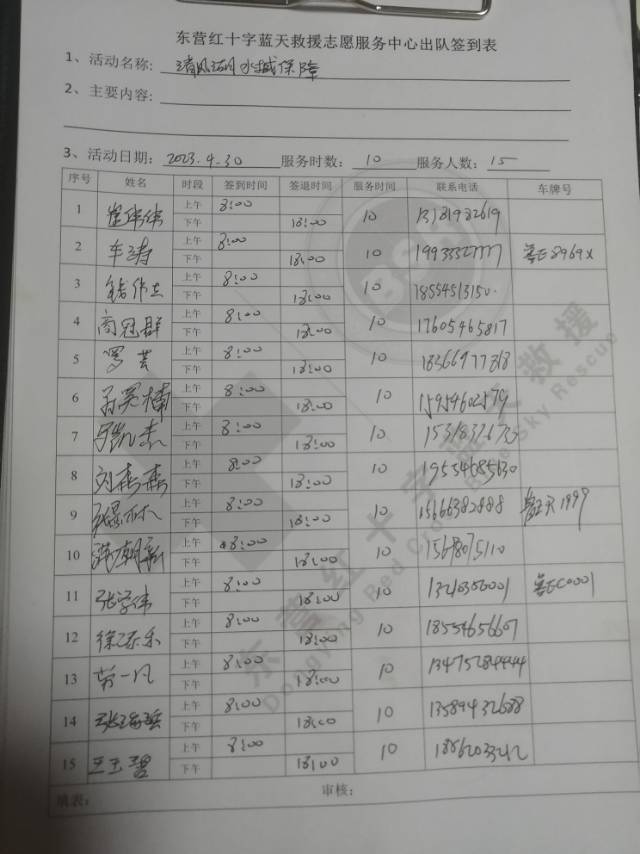 东营红十字蓝天救援志愿服务中心出队签到表
1、活动名称: 清风湖水城保障
2、主要内容:
3、活动日期: 2023.4.30 服务时数: 10 服务人数: 15
序号 姓名 时段 签到时间 签退时间 服务时间 联系电话 车牌号
1 崔伟伟 上午 8:00 下午 18:00 10 13181982619
2 车涛 上午 8:00 下午 18:00 10 鲁E8969X
3 上午 8:00 下午 18:00 10 18554513150
4 商冠群 上午 8:00 下午 18:00 10 17605465817
5 罗芸 上午 8:00 下午 18:00 10 18366977818
6 上午 8:00 下午 18:00 10 15954602579
7 上午 8:00 下午 18:00 10
8 刘春春 上午 8:00 下午 18:00 10 19554685130
9 上午 8:00 下午 18:00 10 15666382888
10 上午 8:00 下午 18:00 10 15678075110
11 张学伟 上午 8:00 下午 18:00 10
12 上午 8:00 下午 18:00 10 18554656607
13 苗一凡 上午 8:00 下午 18:00 10 13475284444
14 上午 8:00 下午 18:00 10 13589432688
15 王玉碧 上午 8:00 下午 18:00 10
填表: 审核:
BSR
东营红十字蓝天救援
Dongying Red Cross Blue Sky Rescue